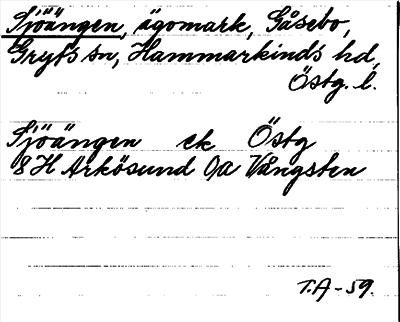 Sjöängen, ägomark, Gåsebo,
Gryts sn, Hammarkinds hd,
Östg. l.
Sjöängen ek Östg
8H Arkösund 0a Vångsten
T.A-59.